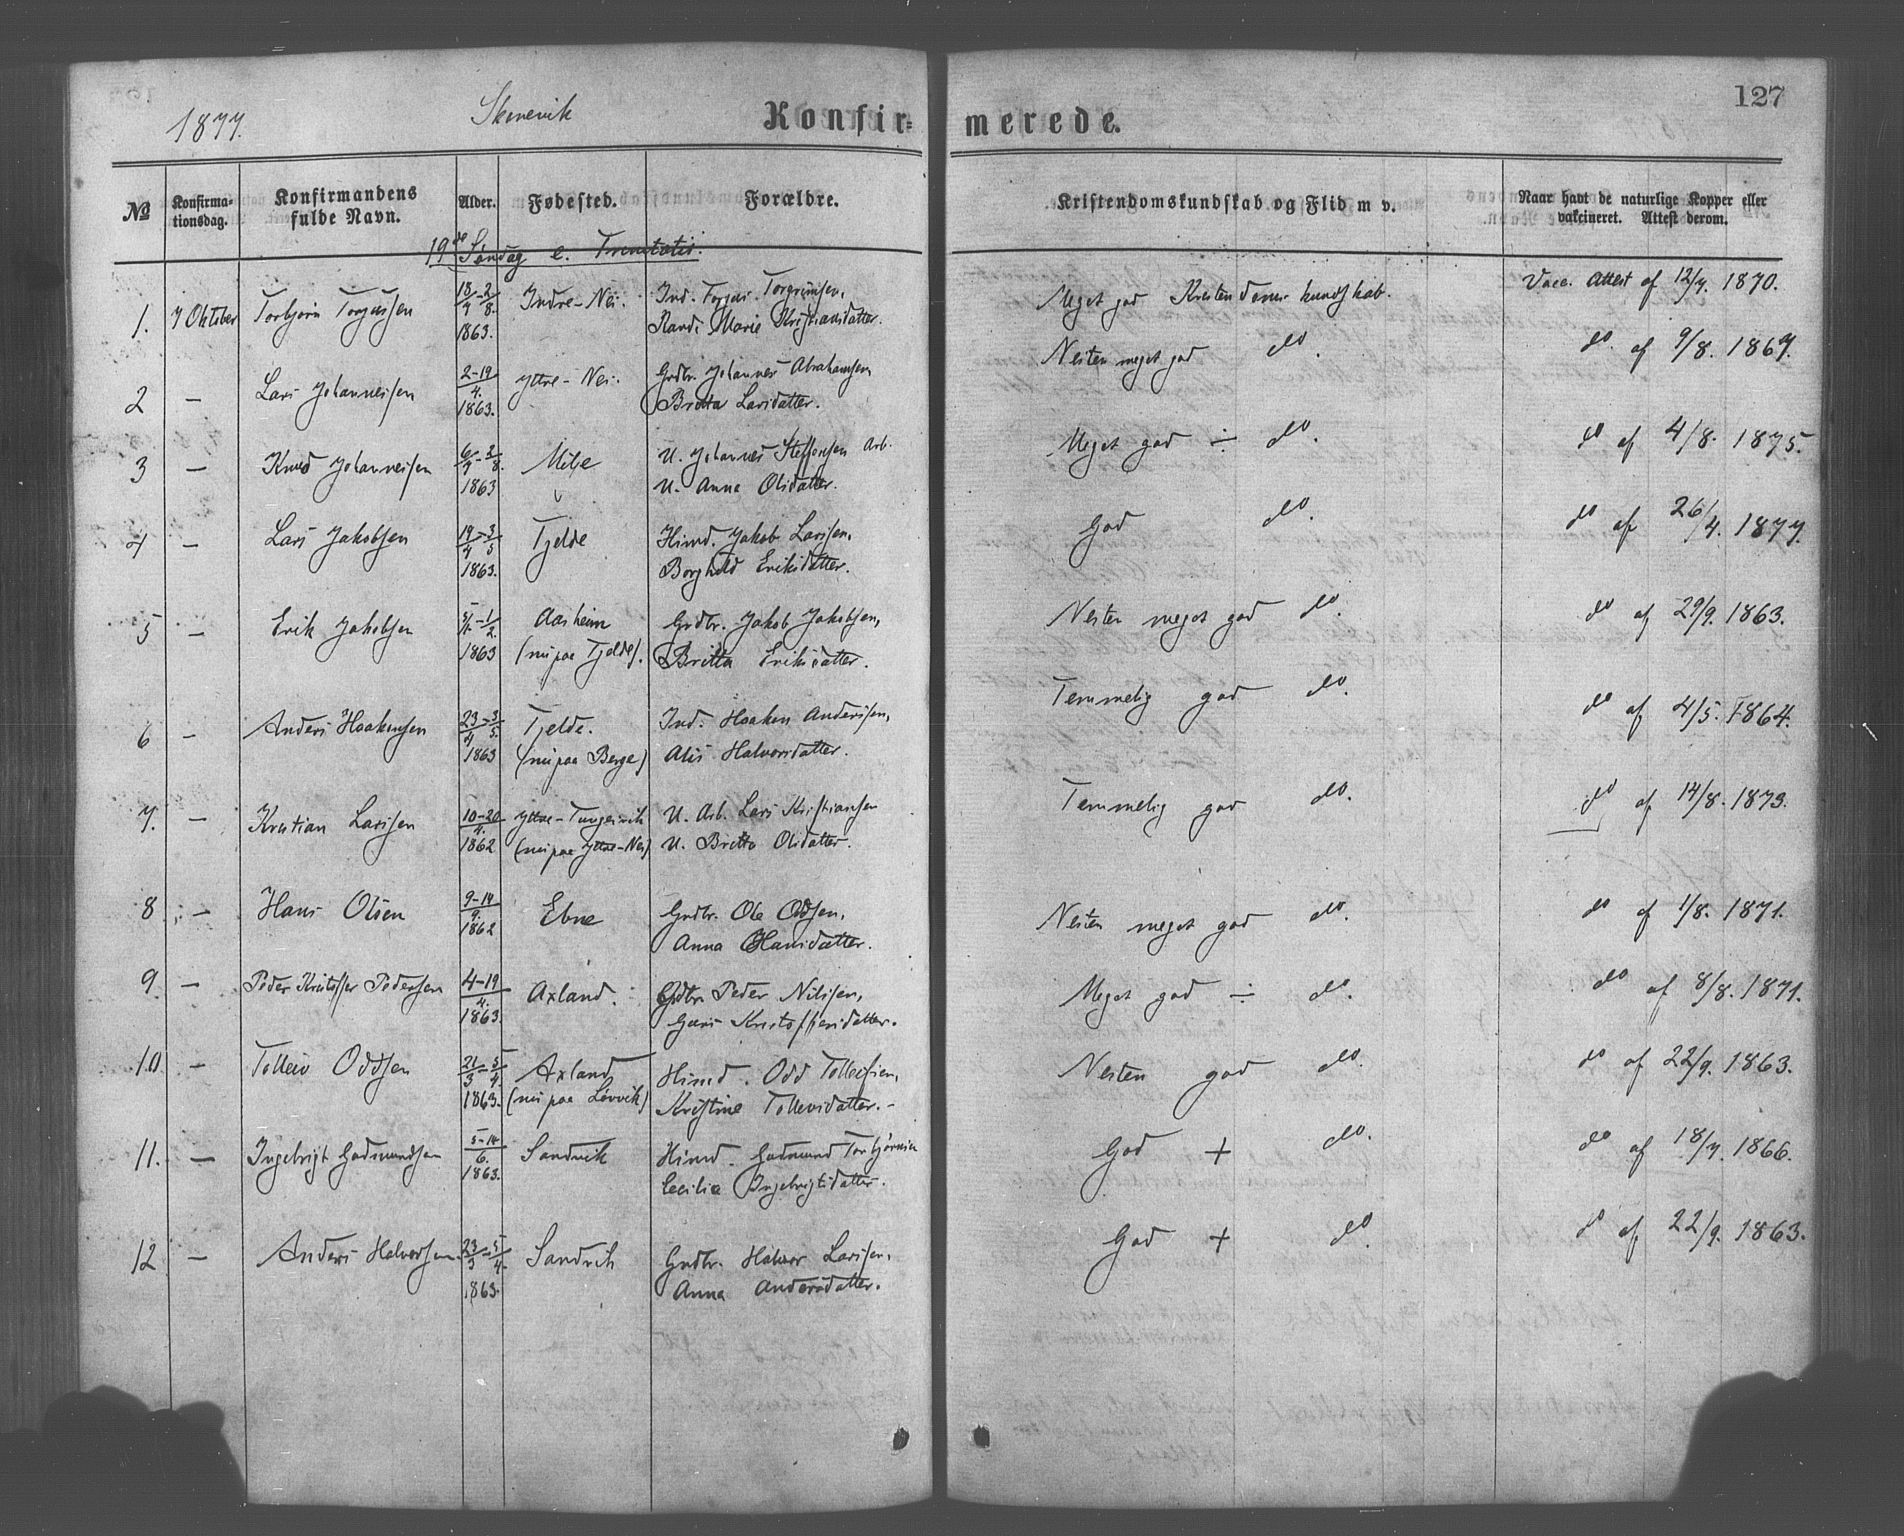 1877.
Skonevik
Konfir=
merede.
127
No
Konfirma-
tionsdag.
Konfirmandens
fulde Navn.
Alder.
Fødested.
Forældre.
Kristendomskundskab og Flid m v.
Naar havt de naturlige Kopper eller
vakcineret. Attest derom.
19de Søndag e. Trinitatis.
1. 7 Oktober Torbjørn Torgersen 18/7-2/8. 1863. Indre-Nes. Ind. Torger Torgrimsen,
Randi Marie Kristiansdatter.
Meget god Kristendomskundskab. Vacc. Attest af 12/7. 1870.
2 — Lars Johannessen 2-19/4. 1863. Yttre-Nes. Grdbr. Johannes Abrahamsen
Britta Larsdatter.
Nesten meget god do. do. af 9/8. 1867.
3 — Knud Johannessen 6/7-2/8. 1863 Milje U. Johannes Steffensen Arb.
U. Anna Olsdatter.
Meget god ÷ do. do af 4/8. 1875.
4 — Lars Jakobsen 19/4-3/5 1863. Tjelde Himd. Jakob Larssen,
Borghild Eriksdatter.
God do. do af 26/4. 1877.
5 — Erik Jakobsen 5/1-1/2. 1863 Aasheim
(nu paa Tjelde). Grdbr. Jakob Jakobsen,
Britta Eriksdatter.
Nesten meget god do. do af 29/9. 1863.
6 — Anders Haakensen 23/4-3/5. 1863 Tjelde.
(nu paa Berge) Ind. Haaken Anderssen,
Alis Halvorsdatter.
Temmelig god do. do af 4/5. 1864.
7. — Kristian Larssen 10-20/4. 1862 Yttre-Tungesvik
(nu paa Yttre-Nes) U. Arb. Lars Kristiansen
U. Britta Olsdatter.
Temmelig god do. do af 14/8. 1873.
8 — Hans Olsen 9-14/9. 1862 Ebne Grdbr. Ole Oddsen,
Anna Hansdatter.
Nesten meget god do. do af 1/8. 1871.
9. — Peder Kristoffer Pedersen 4-19/4. 1863. Axland. Grdbr. Peder Nilssen,
Guri Kristoffersdatter.
Meget god ÷ do. do af 8/8. 1871.
10. — Tolleiv Oddsen 21/3-5/4. 1863. Axland
(nu paa Løvvik) Himd. Odd Tolleifsen,
Kristine Tollevsdatter.
Nesten god do. do af 22/9. 1863.
11. — Ingebrigt Gudmundsen 5-14/6. 1863. Sandvik Himd. Gudmund Torbjørnsen
Cecilia Ingebrigtsdatter.
God + do. do af 18/7. 1866.
12 — Anders Halvorsen 23/3-5/4. 1863. Sandvik Grdbr. Halvor Larssen,
Anna Andersdatter.
God + do. do af 22/9. 1863.